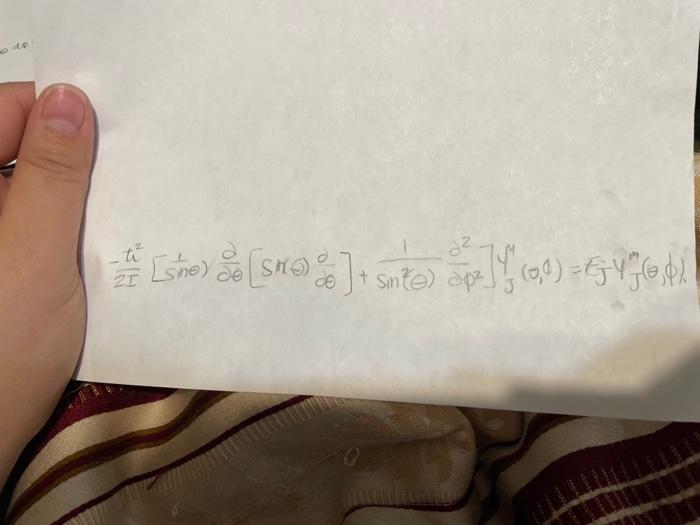 θ dΦ
-ħ²/2I [1/sinθ) ∂/∂θ [sin(θ) ∂/∂θ] + 1/sin²(θ) ∂²/∂φ²] Y_J^M (θ,φ) = E_J Y_J^m (θ,φ).